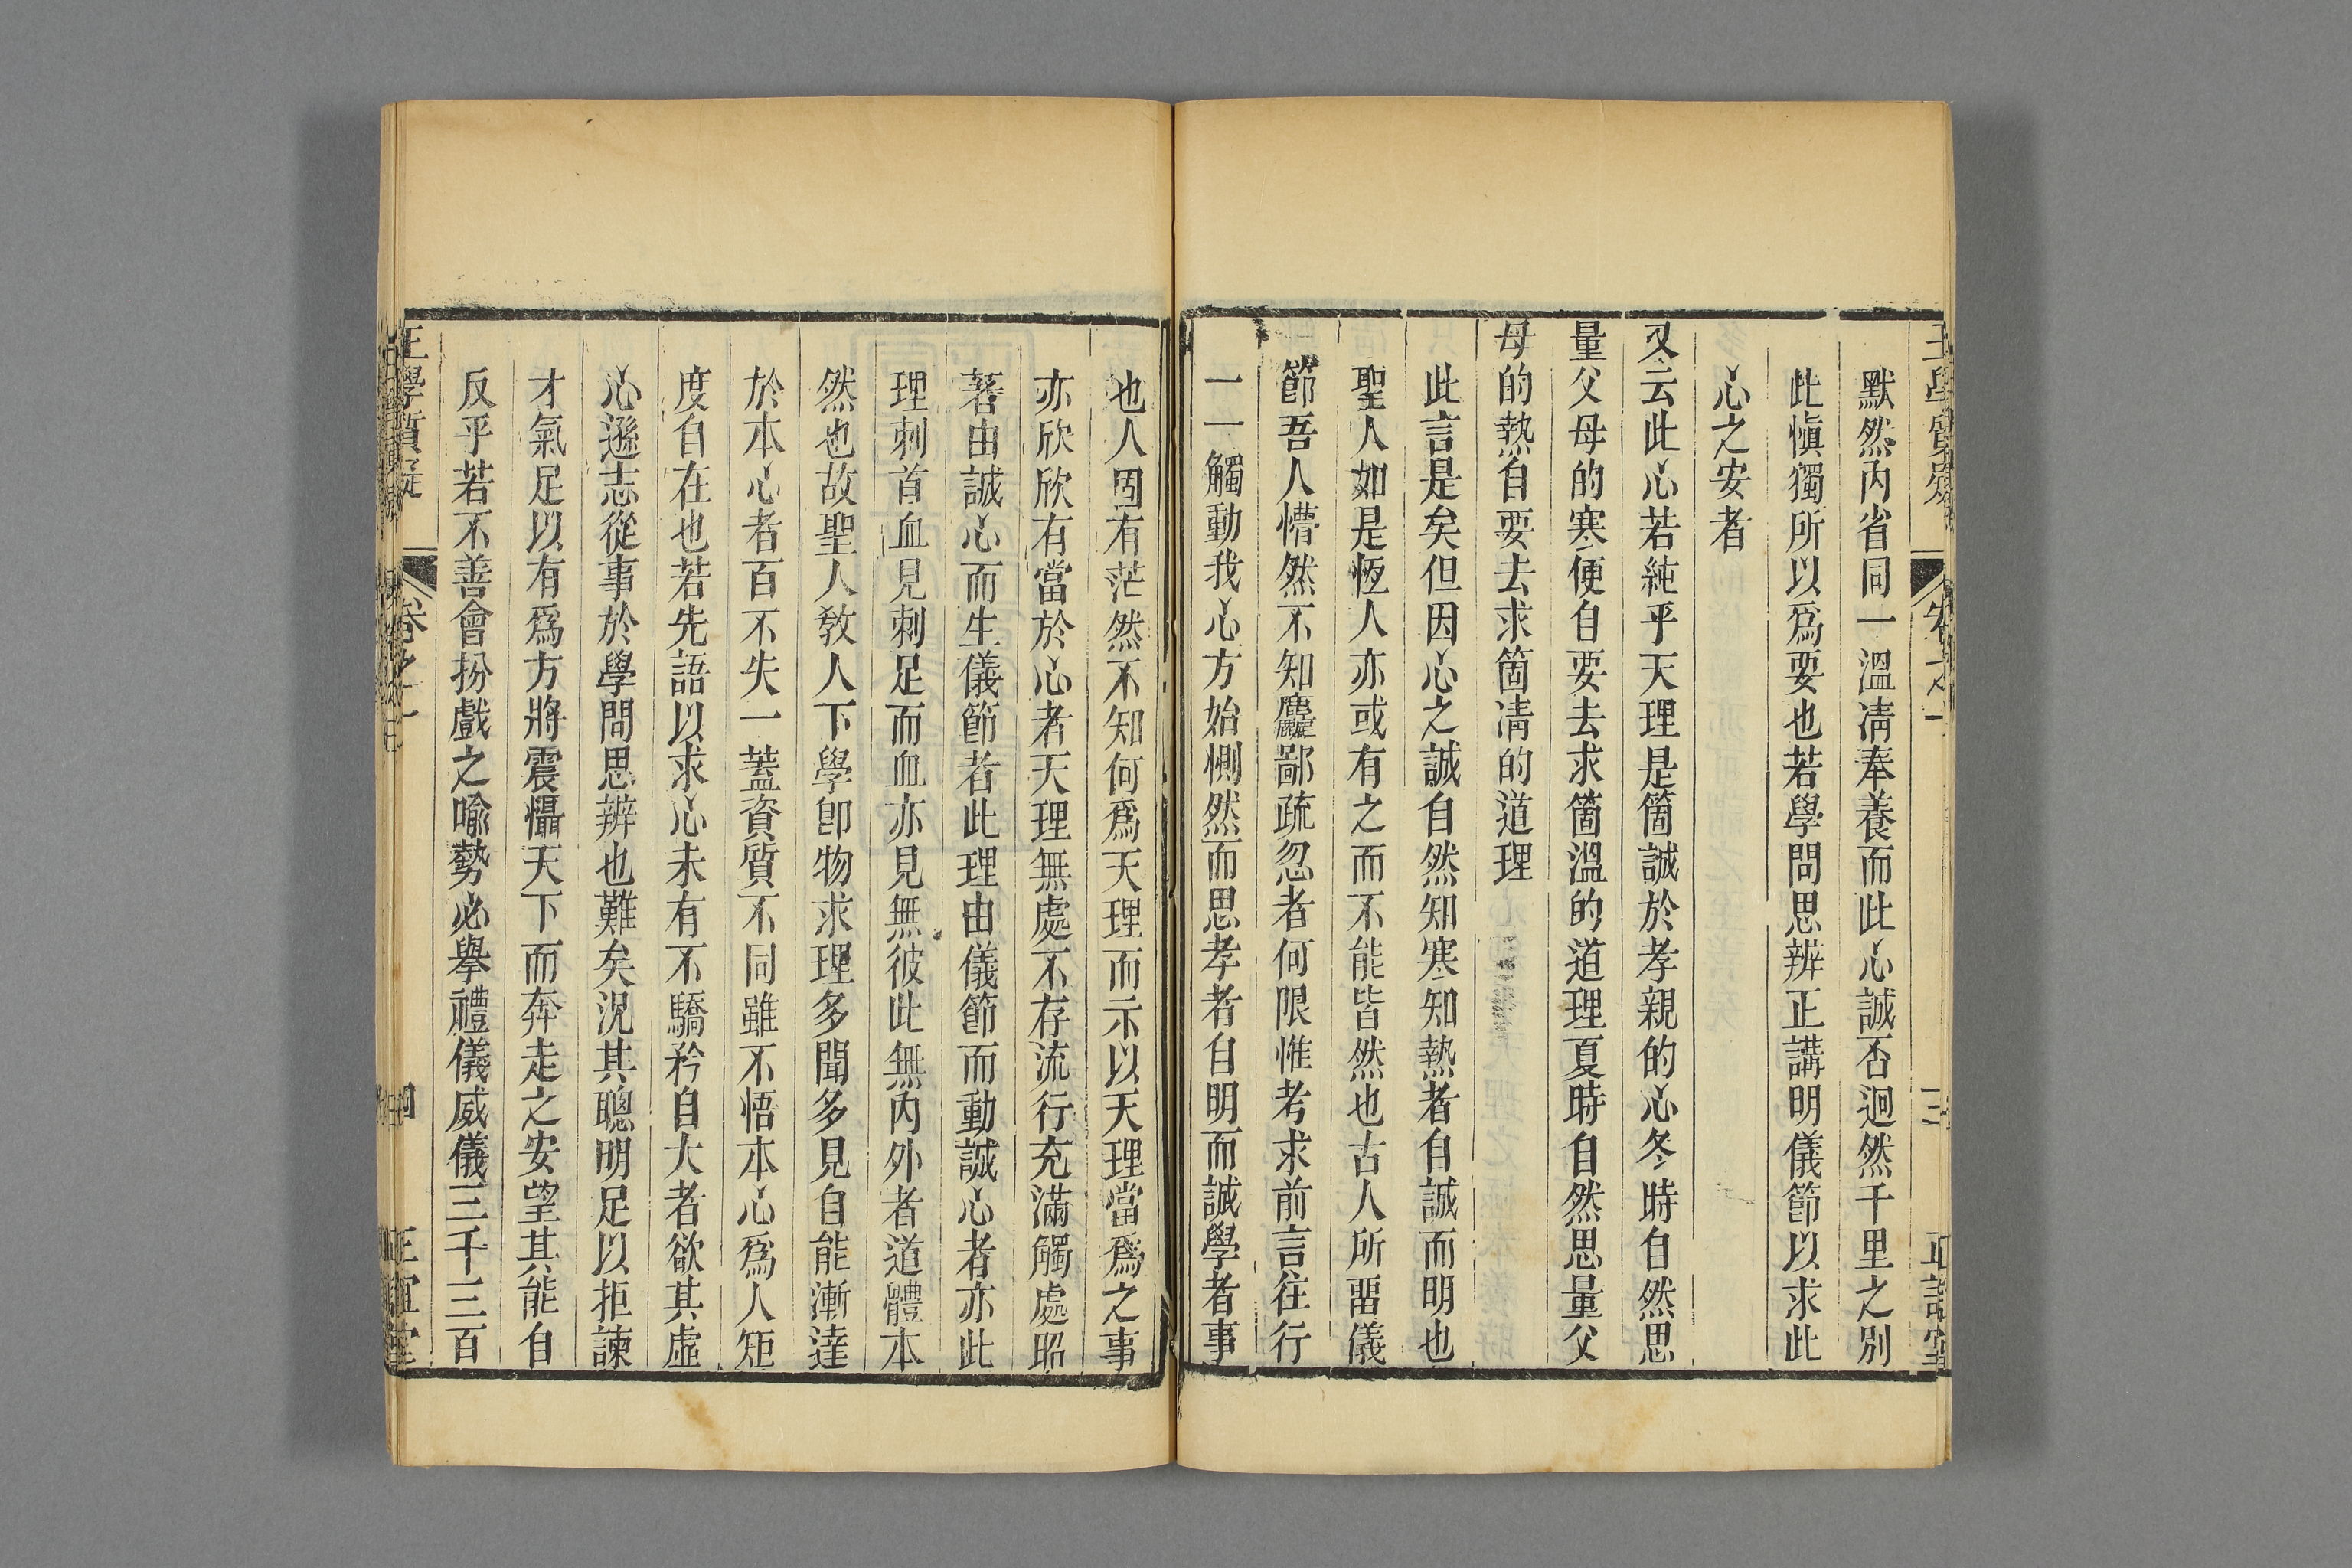 王學質疑 卷之一 三 正誼堂
默然內省同一溫凊奉養而此心誠否迥然千里之別
此愼獨所以爲要也若學問思辨正講明儀節以求此
心之安者
又云此心若純乎天理是箇誠於孝親的心冬時自然思
量父母的寒便自要去求箇溫的道理夏時自然思量父
母的熱自要去求箇凊的道理
此言是矣但因心之誠自然知寒知熱者自誠而明也
聖人如是恆人亦或有之而不能皆然也古人所畱儀
節吾人懵然不知麤鄙疏忽者何限惟考求前言往行
一一觸動我心方始惻然而思孝者自明而誠學者事
也人固有茫然不知何爲天理而示以天理當爲之事
亦欣欣有當於心者天理無處不存流行充滿觸處昭
著由誠心而生儀節者此理由儀節而動誠心者亦此
理刺首血見刺足而血亦見無彼此無內外者道體本
然也故聖人敎人下學卽物求理多聞多見自能漸達
於本心者百不失一蓋資質不同雖不悟本心爲人矩
度自在也若先語以求心未有不驕矜自大者欲其虛
心遜志從事於學問思辨也難矣況其聰明足以拒諫
才氣足以有爲方將震懾天下而奔走之安望其能自
反乎若不善會扮戲之喩勢必舉禮儀威儀三千三百
王學質疑 卷之一 四 正誼堂